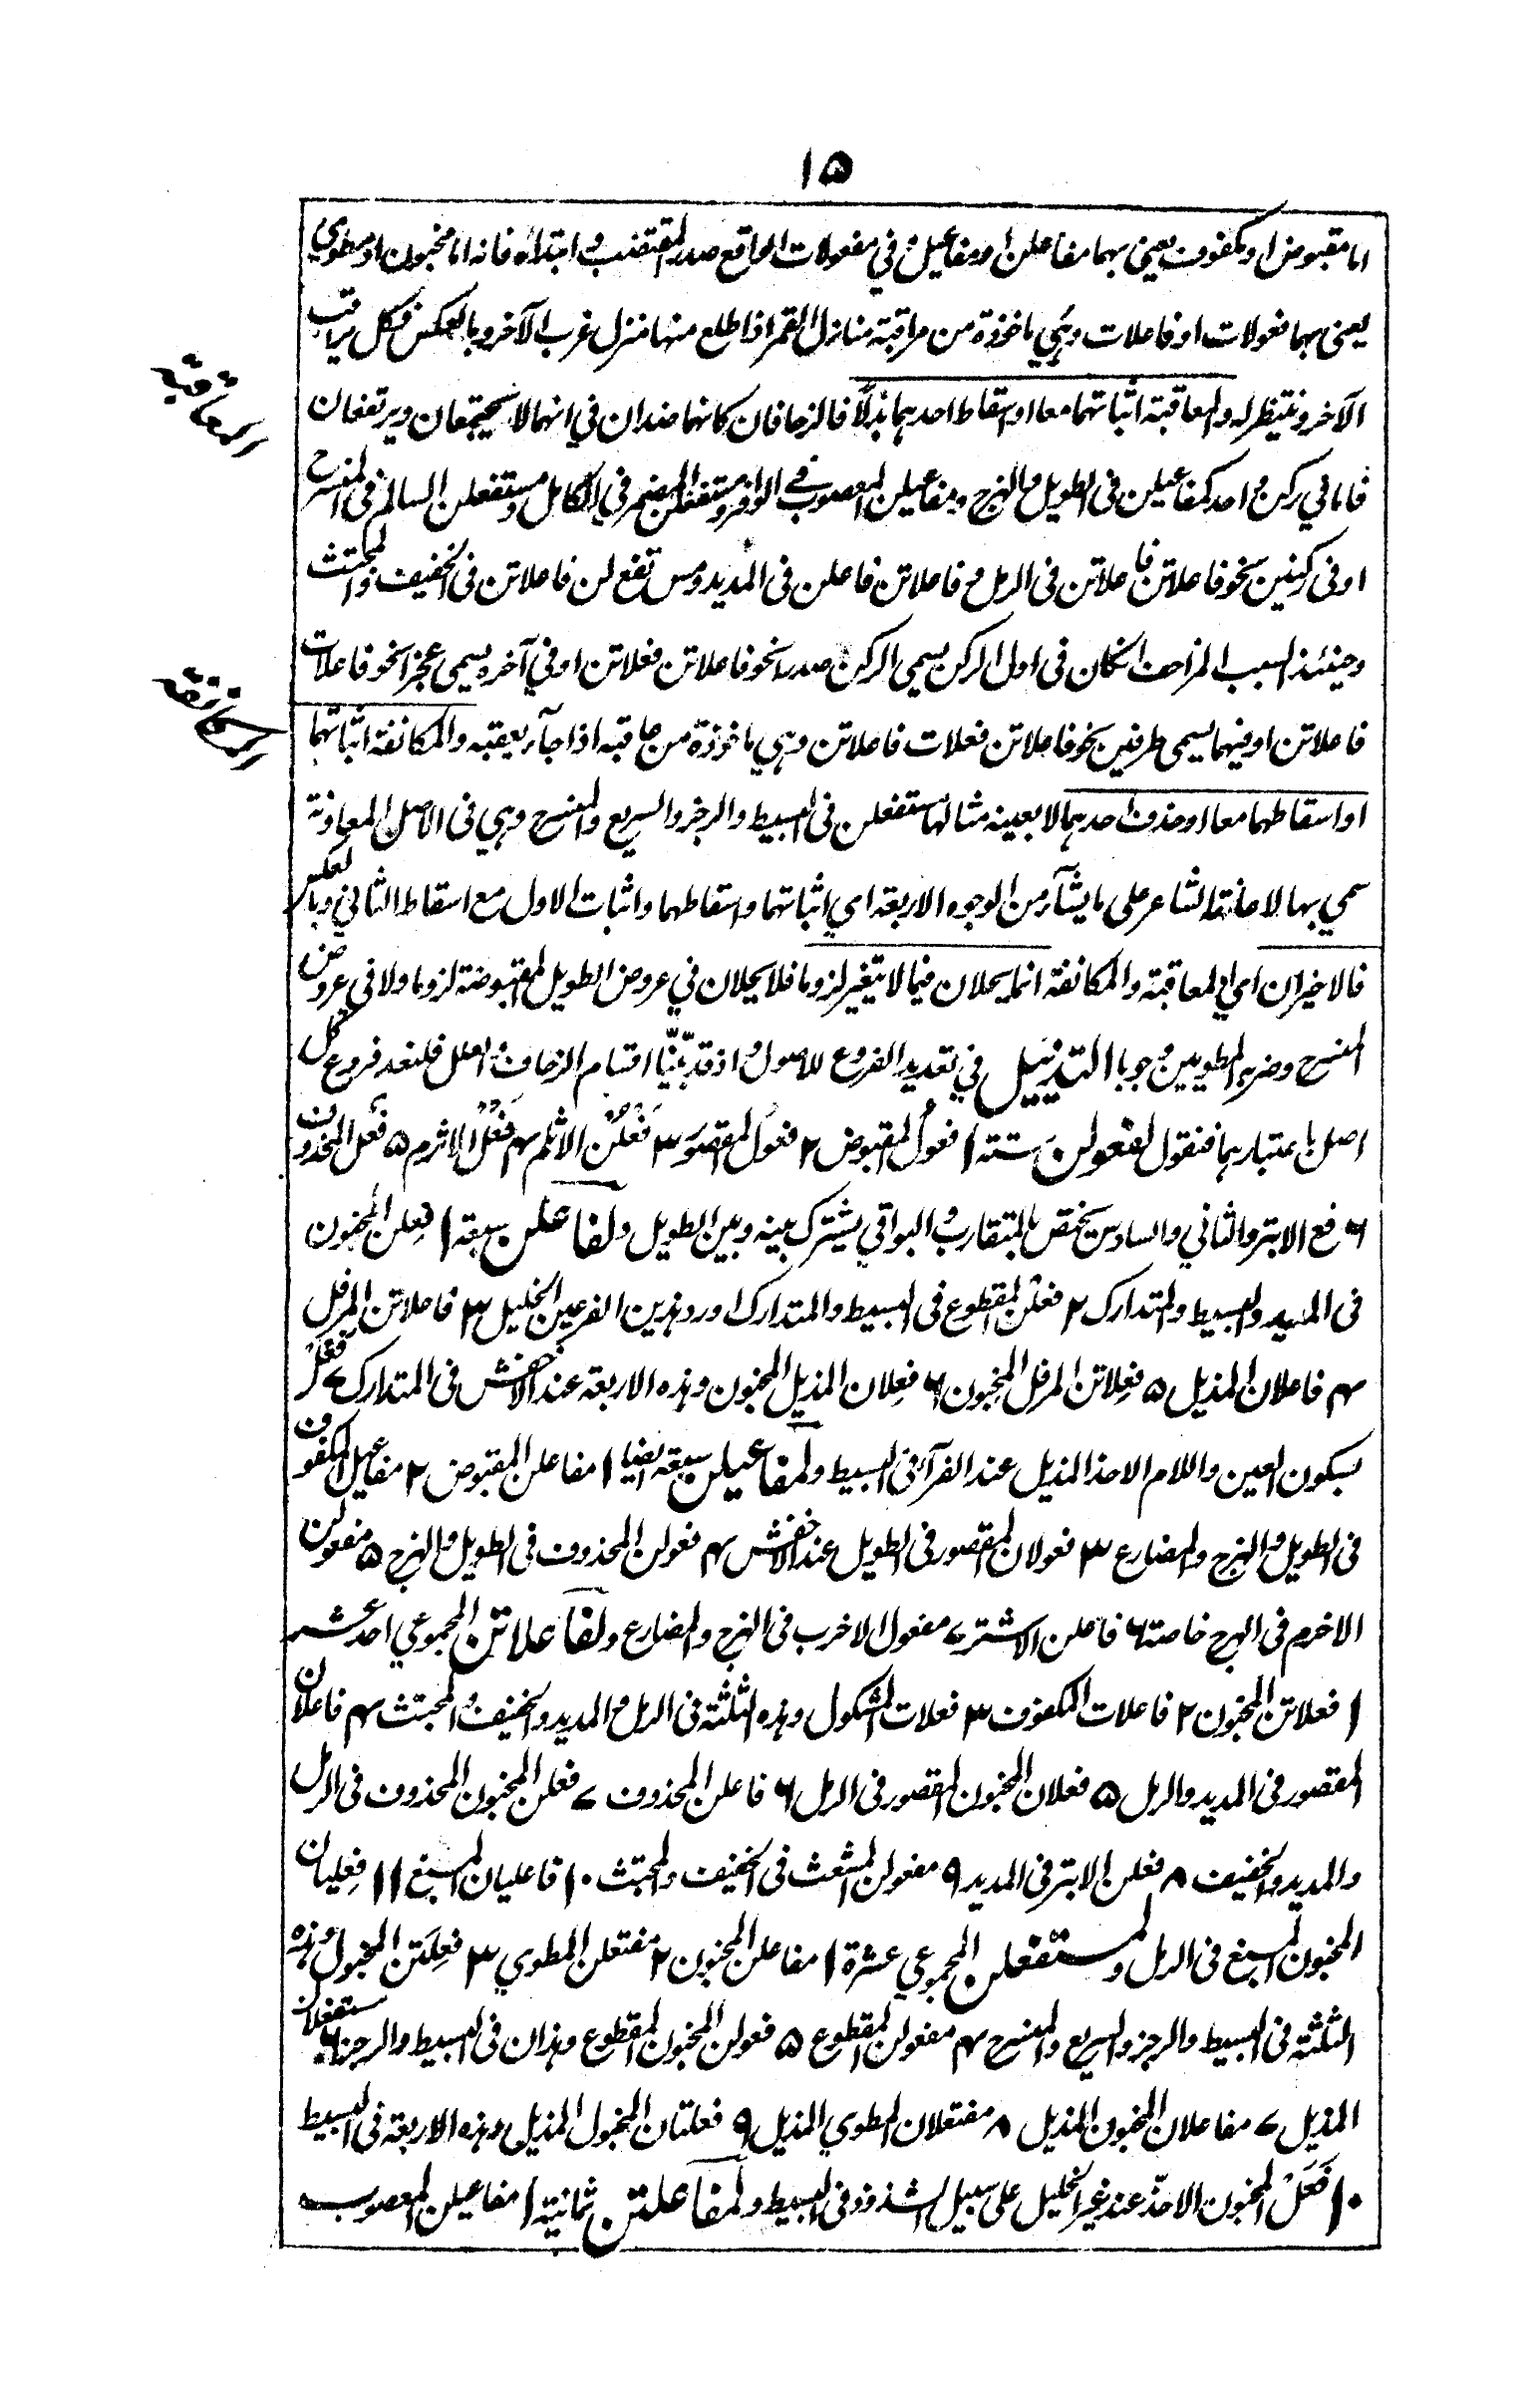 ١٥
اما مقبوض او مكفوف يعني بهما مفاعلن او مفاعيل و في مفعولات الواقع صدر المقتضب و ابتداؤه فانه اما مخبون او مطوي
يعني بهما فعولات او فاعلات وهي ماخوذة من مراقبة منازل القمر اذا طلع منها منزل غرب الآخر وبالعكس فكل يراقب
المعاقبة
الآخر وينتظر له والمعاقبة اثباتهما معا او اسقاط احدهما بدلا فالزحافان كانهما ضدان في انهما لا يجتمعان ويرتفعان
فاما في ركن واحد كمفاعيلن فى الطويل والهزج ومفاعيلن المعصوب في الوافر ومستفعلن المضمر في الكامل ومستفعلن السالم فى المنسرح
او فى ركنين نحو فاعلاتن فاعلاتن فى الرمل و فاعلاتن فاعلن فى المديد و مس تفع لن فاعلاتن فى الخفيف والمجتث
وحينئذ السبب المزاحف انكان فى اول الركن يسمي الركن صدرا نحو فاعلاتن فعلاتن او في آخره يسمي عجزا نحو فاعلات
المكانفة
فاعلاتن او فيهما يسمى طرفين نحو فاعلاتن فعلات فاعلاتن وهي ماخوذة من عاقبه اذا جآء بعقبه والمكانفة اثباتهما
او اسقاطهما معا او حذف احدهما لا بعينه مثالها مستفعلن فى البسيط والرجز والسريع والمنسرح وهي فى الاصل المعاونة
سمي بها لاعانة الشاعر على ما يشآء من الوجوه الاربعة اي اثباتهما واسقاطهما واثبات الاول مع اسقاط الثاني وبالعكس
فالاخيران اي المعاقبة والمكانفة انما يحلان فيما لا يتغير لزوما فلا يحلان في عروض الطويل المقبوضة لزوما ولا في عروض
المنسرح وضربه المطويين وجوبا التذييل في تعديد الفروع للاصول و اذ قد بيّنّا اقسام الزحاف والعلل فلنعد فروع كل
اصل باعتبارهما فنقول لفعولن ستة ١ فعولُ المقبوض ٢ فعولْ المقصور ٣ فَعْلُنْ الاثلم ٤ فَعْلُ الاثرم ٥ فَعَلْ المحذوف
٦ فع الابتر والثاني والسادس يختص بالمتقارب والبواقي يشترك بينه وبين الطويل ولفاعلن سبعة ١ فعِلن المخبون
فى المديد والبسيط والمتدارك ٢ فعْلن المقطوع فى البسيط والمتدارك اورد هذين الفرعين الخليل ٣ فاعلاتن المرفل
٤ فاعلان المذيل ٥ فعِلاتن المرفل المخبون ٦ فعِلان المذيل المخبون وهذه الاربعة عند الاخفش فى المتدارك ٧ فعْلْ
بسكون العين واللام الاحذ المذيل عند الفرآء فى البسيط ولمفاعيلن سبعة ايضا ١ مفاعلن المقبوض ٢ مفاعيل المكفوف
فى الطويل والهزج والمضارع ٣ فعولان المقصور فى الطويل عند الاخفش ٤ فعولن المحذوف فى الطويل والهزج ٥ مفعولن
الاخرم فى الهزج خاصة ٦ فاعلن الاشتر ٧ مفعول الاخرب فى الهزج والمضارع ولفاعلاتن المجموعي احد عشر
١ فعلاتن المخبون ٢ فاعلات المكفوف ٣ فعلات المشكول وهذه الثلثة فى الرمل والمديد والخفيف والمجتث ٤ فاعلان
المقصور فى المديد والرمل ٥ فعلان المخبون المقصور فى الرمل ٦ فاعلن المحذوف ٧ فعلن المخبون المحذوف فى الرمل
والمديد والخفيف ٨ فعلن الابتر فى المديد ٩ مفعولن المشعث فى الخفيف والمجتث ١٠ فاعليان المسبغ ١١ فعِليان
المخبون المسبغ فى الرمل ولمستفعلن المجموعي عشرة ١ مفاعلن المخبون ٢ مفتعلن المطوي ٣ فعِلَتن المخبول وهذه
الثلثة فى البسيط والرجز والسريع والمنسرح ٤ مفعولن المقطوع ٥ فعولن المخبون المقطوع وهذان فى البسيط والرجز ٦ مستفعلان
المذيل ٧ مفاعلان المخبون المذيل ٨ مفتعلان المطوي المذيل ٩ فعلتان المخبول المذيل وهذه الاربعة فى البسيط
١٠ فَعَلْ المخبون الاحذّ عند غير الخليل على سبيل الشذوذ فى البسيط ولمفاعلتن ثمانية ١ مفاعيلن المعصوب